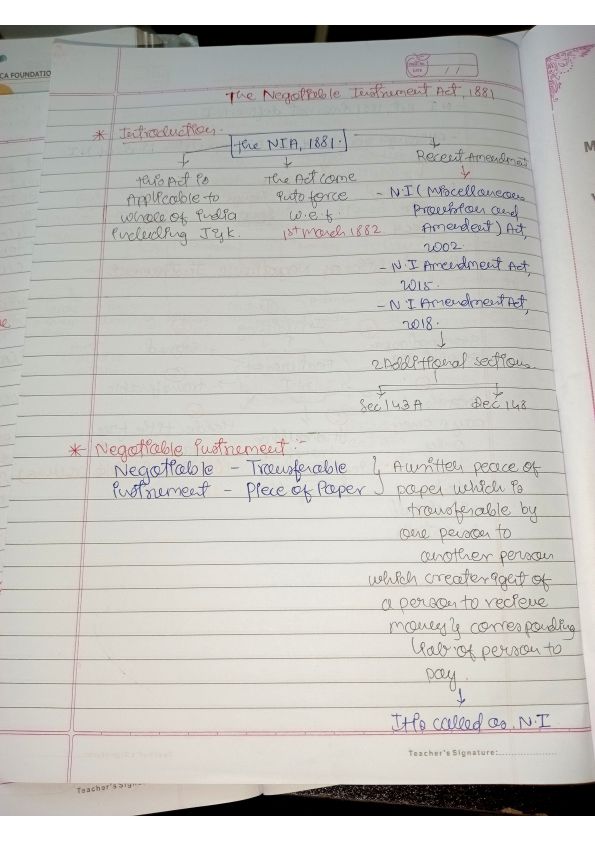 CA FOUNDATIO
DATE / /
The Negotiable Instrument Act, 1881
* Introduction.
the NIA, 1881.
this Act is
Applicable to
whole of India
including J&K.
The Act come
into force
w.e.f.
1st March 1882
Recent Amendment
- N.I (Miscellaneous
Provision and
Amendent) Act,
2002.
- N.I Amendment Act,
2015.
- N.I Amendment Act,
2018.
2 Additional sections
Sec 143A
Sec 148
* Negotiable instrument :-
Negotiable - Transferable
instrument - Piece of Paper
A written peace of
paper which is
transferable by
one person to
another person
which create right of
a person to recieve
money & corresponding
liab. of person to
pay.
It is called as N.I
Teacher's Signature:....................
Teacher's Sign
M